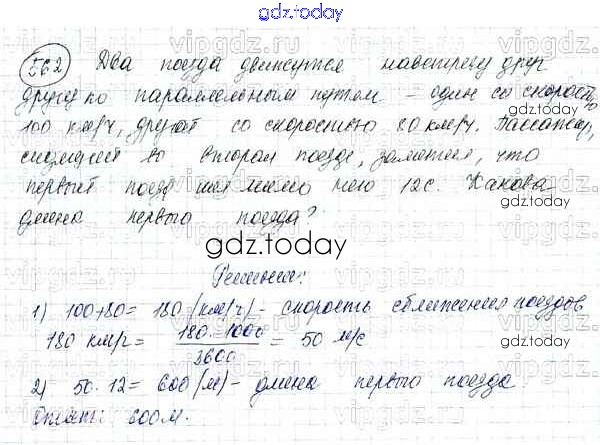 gdz.today
562 Два поезда движутся навстречу друг
другу по параллельным путям - один со скорость
ю
100 км/ч, другой со скоростью 80 км/ч. Пассажир,
сидящий во втором поезде, заметил, что
первый поезд шел мимо него 12 с. Какова
длина первого поезда?
gdz.today
Решение:
1) 100+80= 180 (км/ч) - скорость сближения поездов
180 км/ч = 180 · 1000 / 3600 = 50 м/с
2) 50 · 12 = 600 (м) - длина первого поезда
Ответ: 600м.
gdz.today